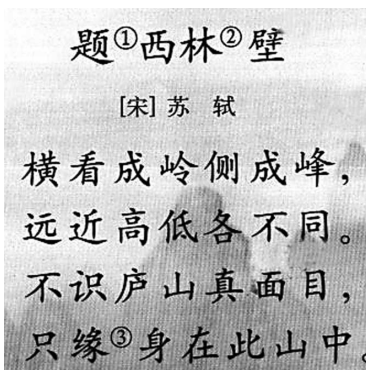 题①西林②壁
[宋] 苏 轼
横看成岭侧成峰，
远近高低各不同。
不识庐山真面目，
只缘③身在此山中。